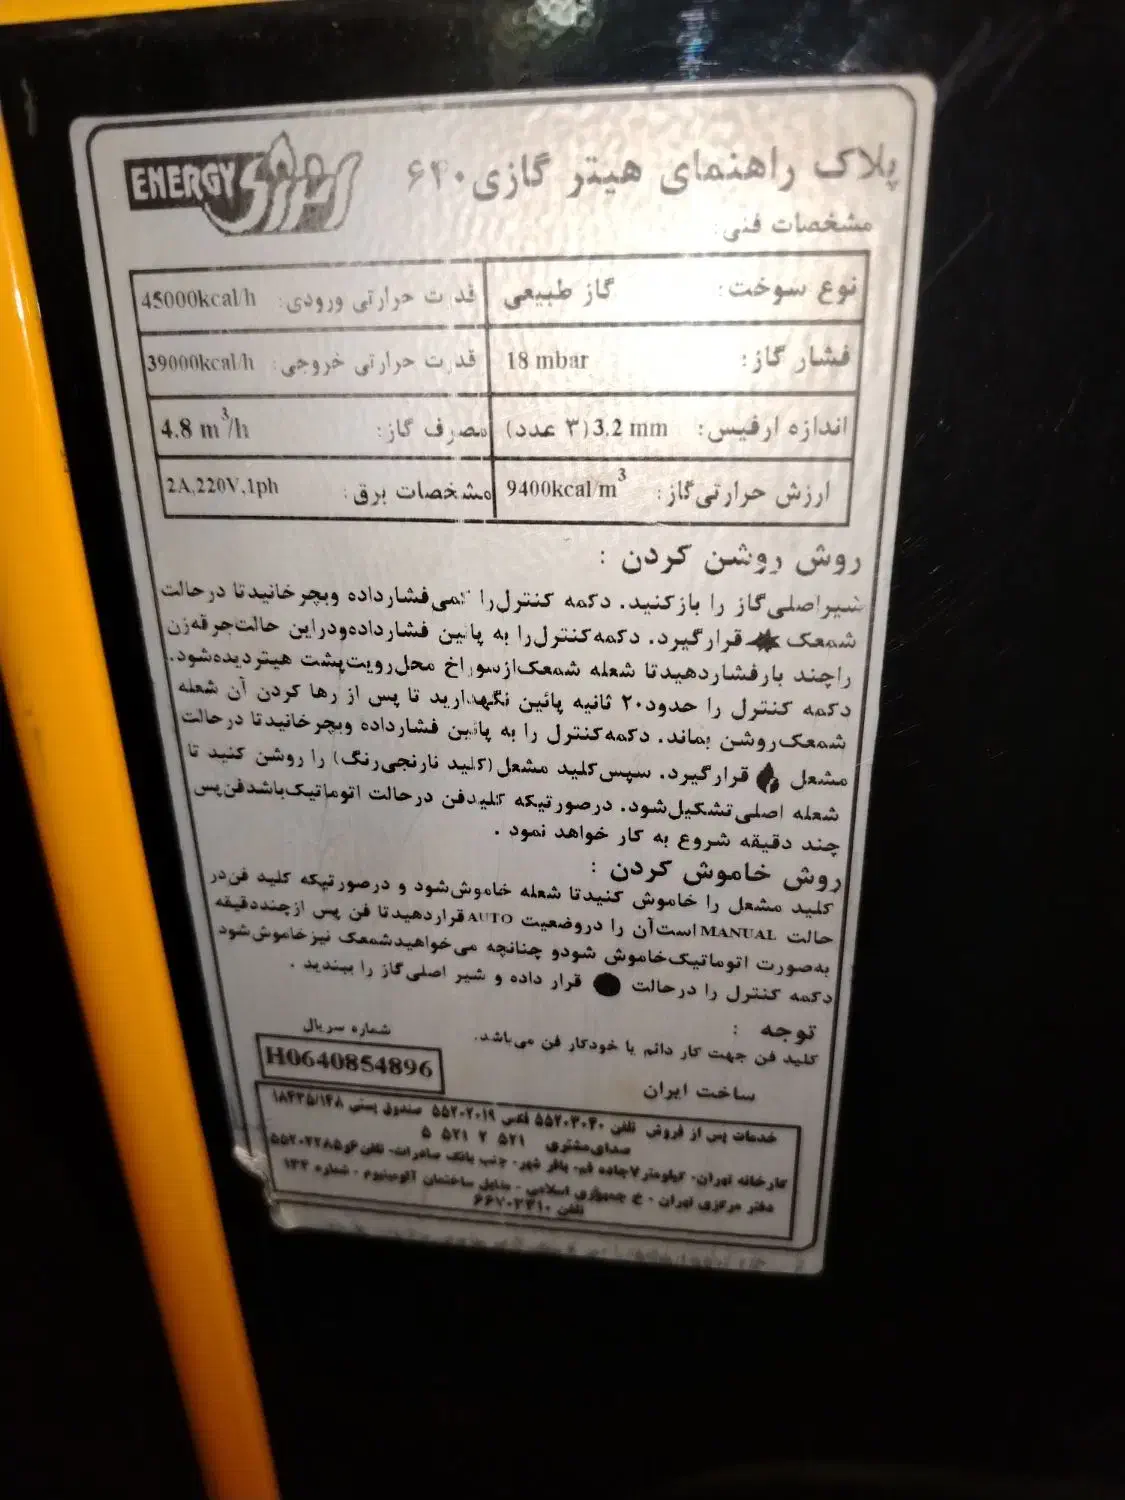 ENERGY انرژی
پلاک راهنمای هیتر گازی ۶۴۰
مشخصات فنی:
نوع سوخت: گاز طبیعی قدرت حرارتی ورودی: 45000kcal/h
فشار گاز: 18 mbar قدرت حرارتی خروجی: 39000kcal/h
اندازه ارفیس: 3.2 mm (۳ عدد) مصرف گاز: 4.8 m³/h
ارزش حرارتی گاز: 9400kcal/m³ مشخصات برق: 2A,220V,1ph
روش روشن کردن :
شیر اصلی گاز را باز کنید. دکمه کنترل را کمی فشار داده و بچرخانید تا در حالت
شمعک قرار گیرد. دکمه کنترل را به پائین فشار داده و در این حالت جرقه زن
را چند بار فشار دهید تا شعله شمعک از سوراخ محل رویت پشت هیتر دیده شود.
دکمه کنترل را حدود ۲۰ ثانیه پائین نگهدارید تا پس از رها کردن آن شعله
شمعک روشن بماند. دکمه کنترل را به پائین فشار داده و بچرخانید تا در حالت
مشعل قرار گیرد. سپس کلید مشعل (کلید نارنجی رنگ) را روشن کنید تا
شعله اصلی تشکیل شود. در صورتیکه کلید فن در حالت اتوماتیک باشد فن پس
چند دقیقه شروع به کار خواهد نمود .
روش خاموش کردن :
کلید مشعل را خاموش کنید تا شعله خاموش شود و در صورتیکه کلید فن در
حالت MANUAL است آن را در وضعیت AUTO قرار دهید تا فن پس از چند دقیقه
به صورت اتوماتیک خاموش شود و چنانچه می خواهید شمعک نیز خاموش شود
دکمه کنترل را در حالت قرار داده و شیر اصلی گاز را ببندید .
توجه :
کلید فن جهت کار دائم یا خودکار فن می باشد.
شماره سریال
H0640854896
ساخت ایران
خدمات پس از فروش تلفن ۵۵۲۰۳۰۳۰ فکس ۵۵۲۰۲۰۱۹ صندوق پستی ۱۸۴۳۵/۱۴۸
صدای مشتری ۵۲۱ ۲ ۵۲۱ ۵
کارخانه تهران- کیلومتر ۷ جاده قم- باقر شهر- جنب بانک صادرات- تلفن ۶و۵۵۲۰۲۲۸۵
دفتر مرکزی تهران - خ جمهوری اسلامی - مقابل ساختمان آلومینیوم - شماره
تلفن ۶۶۷۰۳۳۱۰